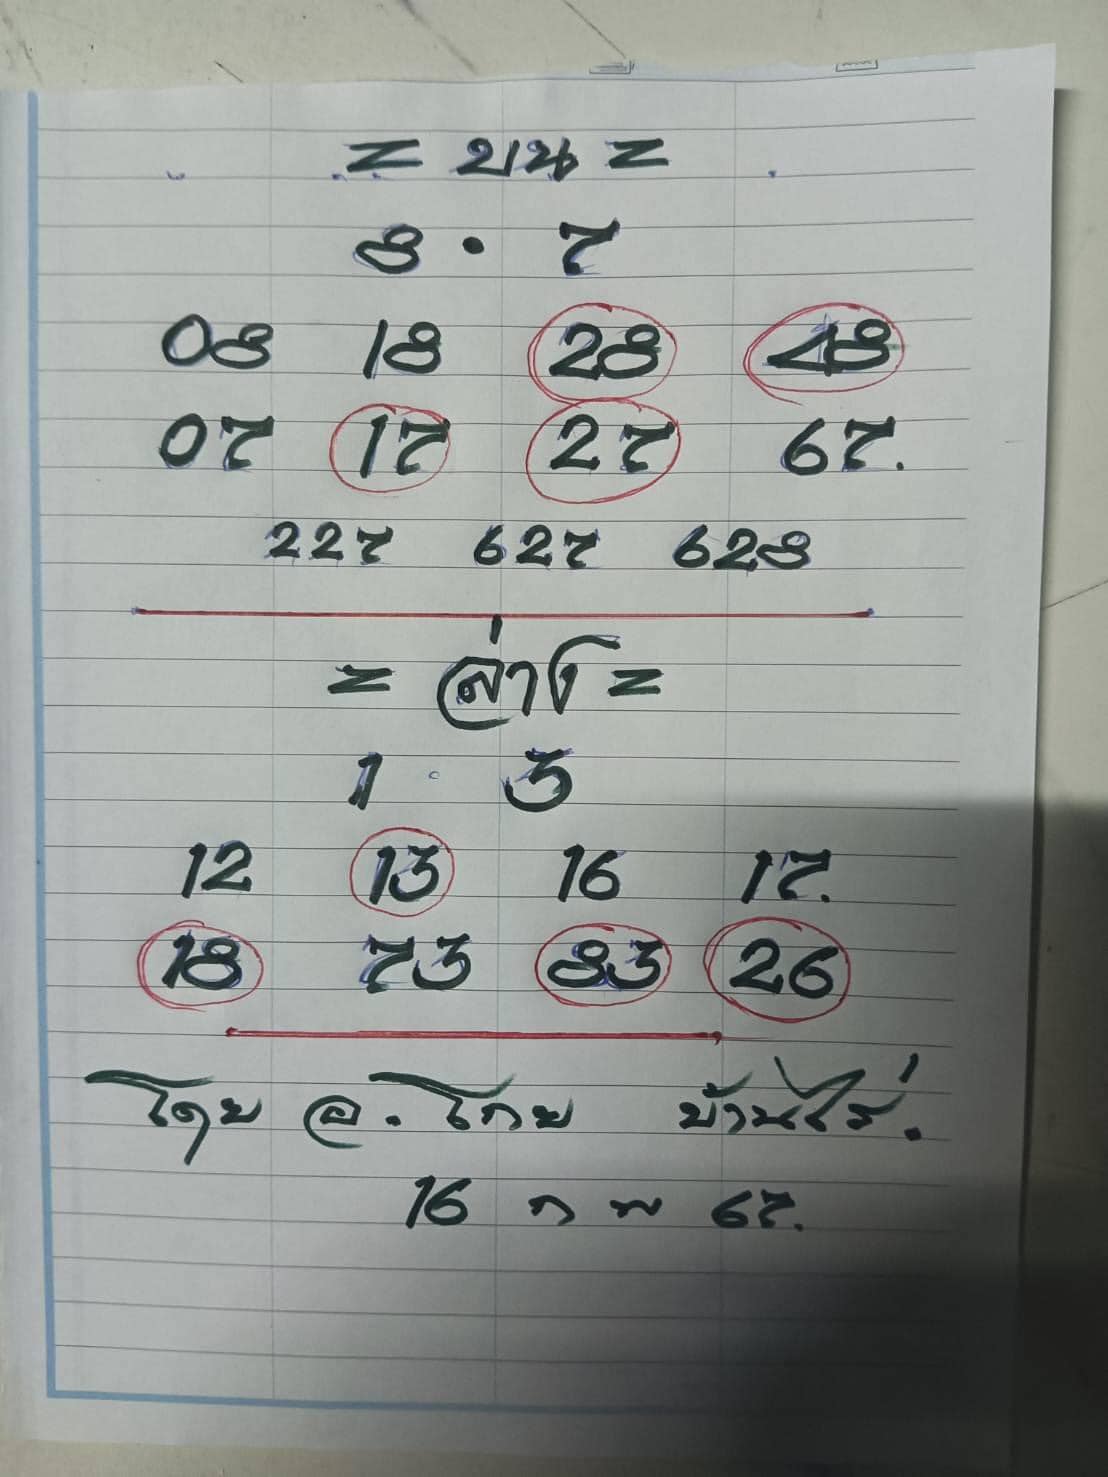 = บน =
8 • 7
08 18 28 48
07 17 27 67.
227 627 628
= ล่าง =
1 · 3
12 13 16 17.
18 73 83 26
โดย อ. โกย บ้านไร่.
16 ก พ 67.